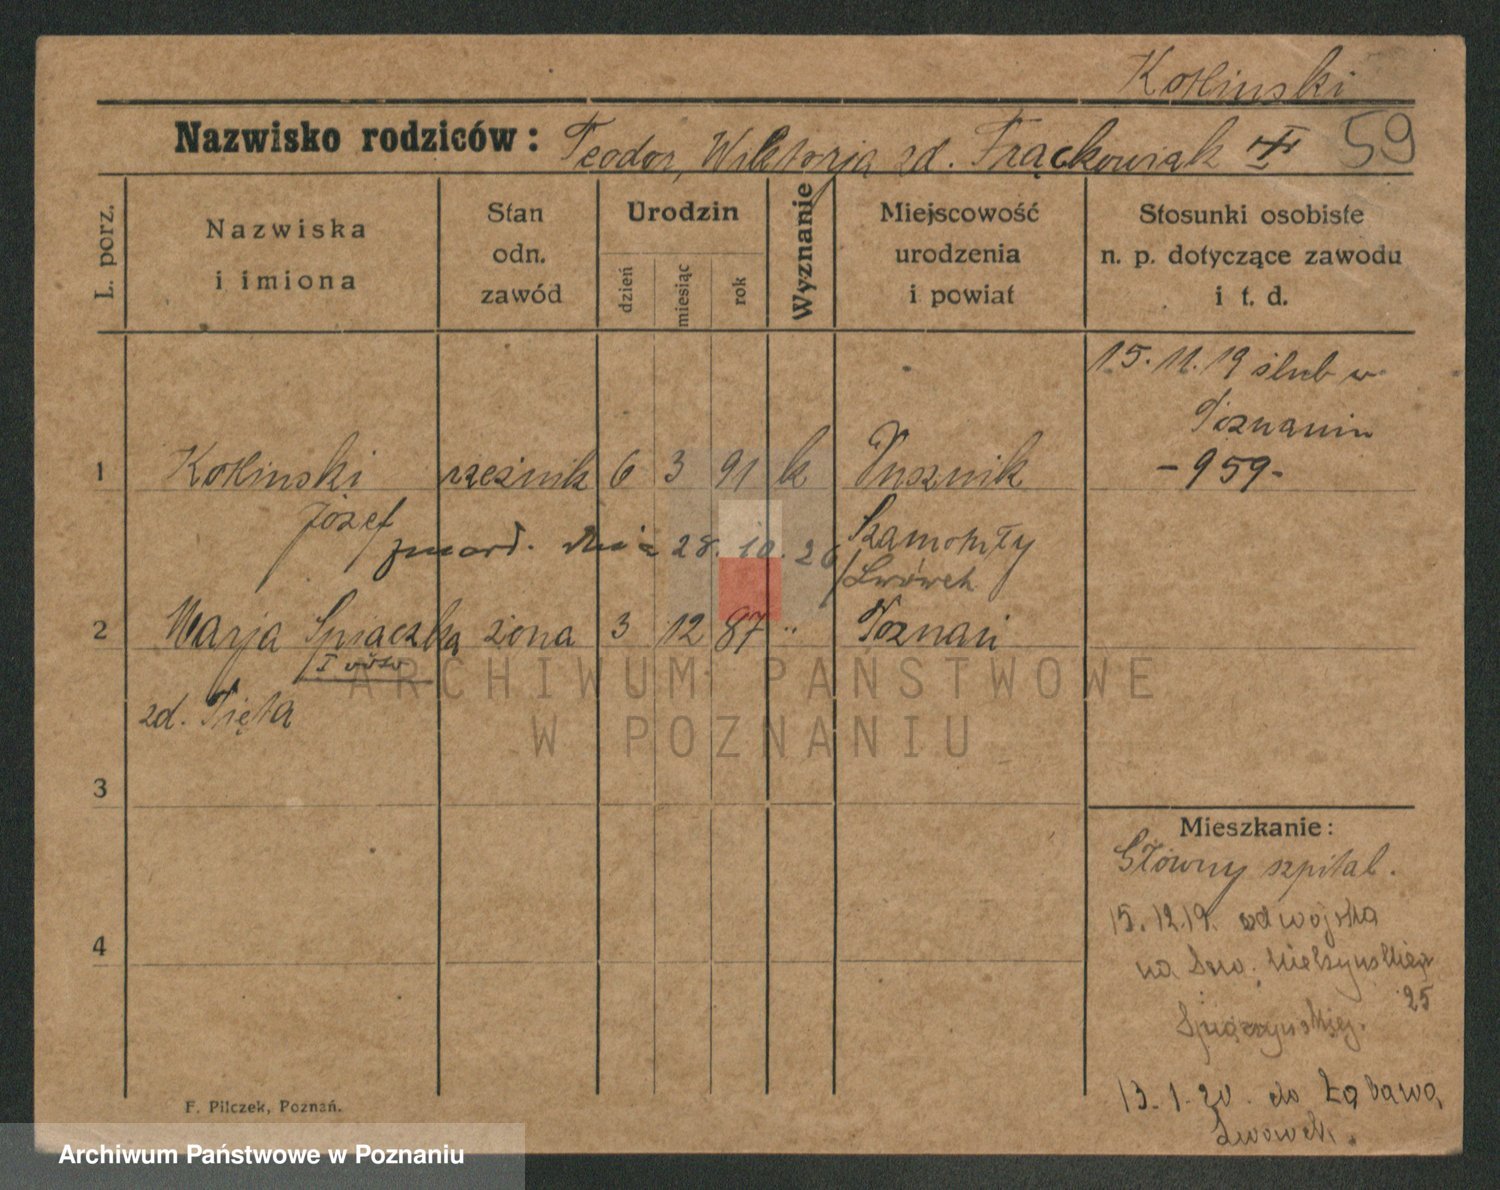 Kotlinski
Nazwisko rodziców: Teodor, Wiktorja zd. Frąckowiak 59
L. porz.
Nazwiska i imiona
Stan odn. zawód
Urodzin
dzień
miesiąc
rok
Wyznanie
Miejscowość urodzenia i powiat
Stosunki osobiste n. p. dotyczące zawodu i t. d.
15. 11. 19 ślub w
Poznaniu
-959-
1 Kotlinski rzeźnik 6 3 91 k Pusznik
Józef
Szamotuły
zmarł. dnia 28. 10. 26
/Lwówek
2 Marja Spiaczka żona 3 12 87 " Poznań
I voto
zd. Pięta
ARCHIWUM PAŃSTWOWE
W POZNANIU
3
4
Mieszkanie:
Główny szpital.
15. 12. 19. od wojska
na Dro. Mielzynskiego
25
13. 1. 20. do
Lwówek.
F. Pilczek, Poznań.
Archiwum Państwowe w Poznaniu